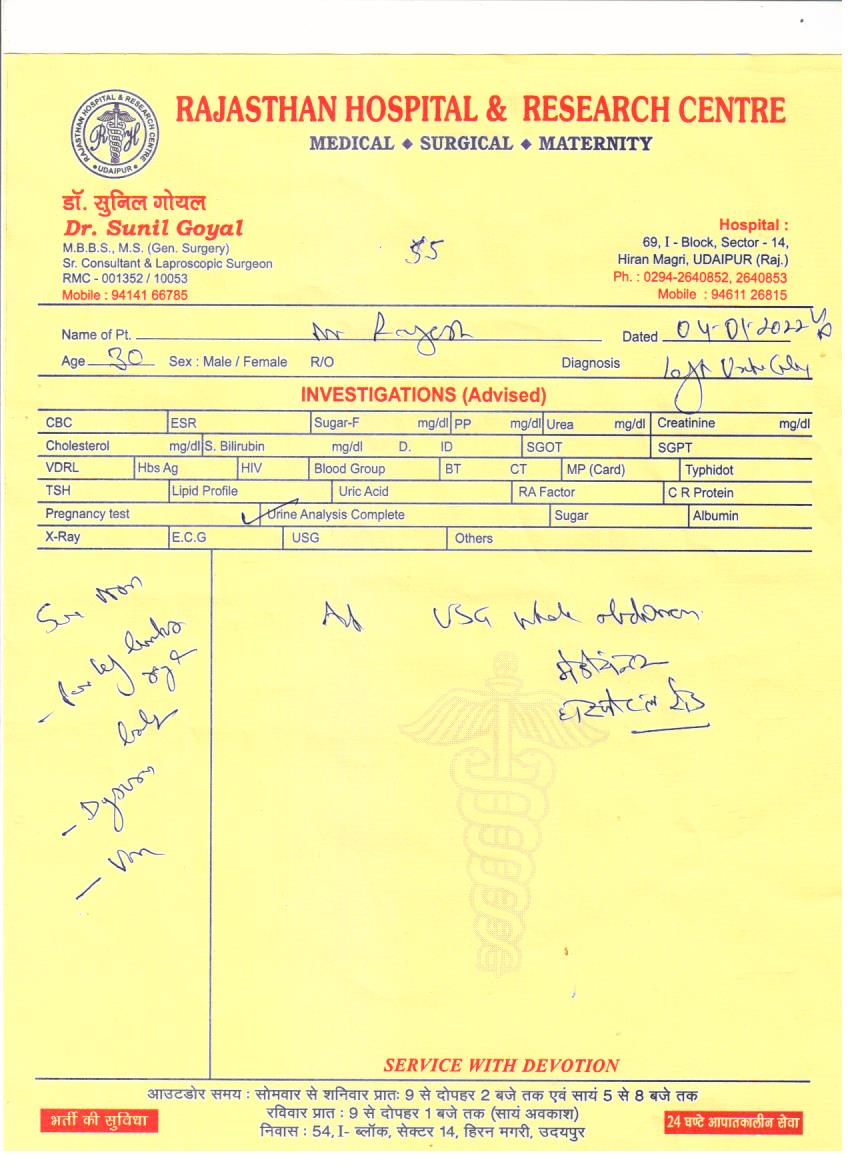 RAJASTHAN HOSPITAL & RESEARCH CENTRE
RAJASTHAN HOSPITAL & RESEARCH CENTRE
MEDICAL ◆ SURGICAL ◆ MATERNITY
RH
• UDAIPUR •
डॉ. सुनिल गोयल
Dr. Sunil Goyal
M.B.B.S., M.S. (Gen. Surgery)
Sr. Consultant & Laproscopic Surgeon
RMC - 001352 / 10053
Mobile : 94141 66785
Hospital :
69, I - Block, Sector - 14,
Hiran Magri, UDAIPUR (Raj.)
Ph. : 0294-2640852, 2640853
Mobile : 94611 26815
Name of Pt. Mr Rajesh Dated 04-01-2022
Age 30 Sex : Male / Female R/O Diagnosis Left
INVESTIGATIONS (Advised)
CBC ESR Sugar-F mg/dl PP mg/dl Urea mg/dl Creatinine mg/dl
Cholesterol mg/dl S. Bilirubin mg/dl D. ID SGOT SGPT
VDRL Hbs Ag HIV Blood Group BT CT MP (Card) Typhidot
TSH Lipid Profile Uric Acid RA Factor C R Protein
Pregnancy test ✓ Urine Analysis Complete Sugar Albumin
X-Ray E.C.G USG Others
Adv USG whole abdomen
SERVICE WITH DEVOTION
आउटडोर समय : सोमवार से शनिवार प्रातः 9 से दोपहर 2 बजे तक एवं सायं 5 से 8 बजे तक
भर्ती की सुविधा
रविवार प्रात : 9 से दोपहर 1 बजे तक (सायं अवकाश)
24 घण्टे आपातकालीन सेवा
निवास : 54, I- ब्लॉक, सेक्टर 14, हिरन मगरी, उदयपुर